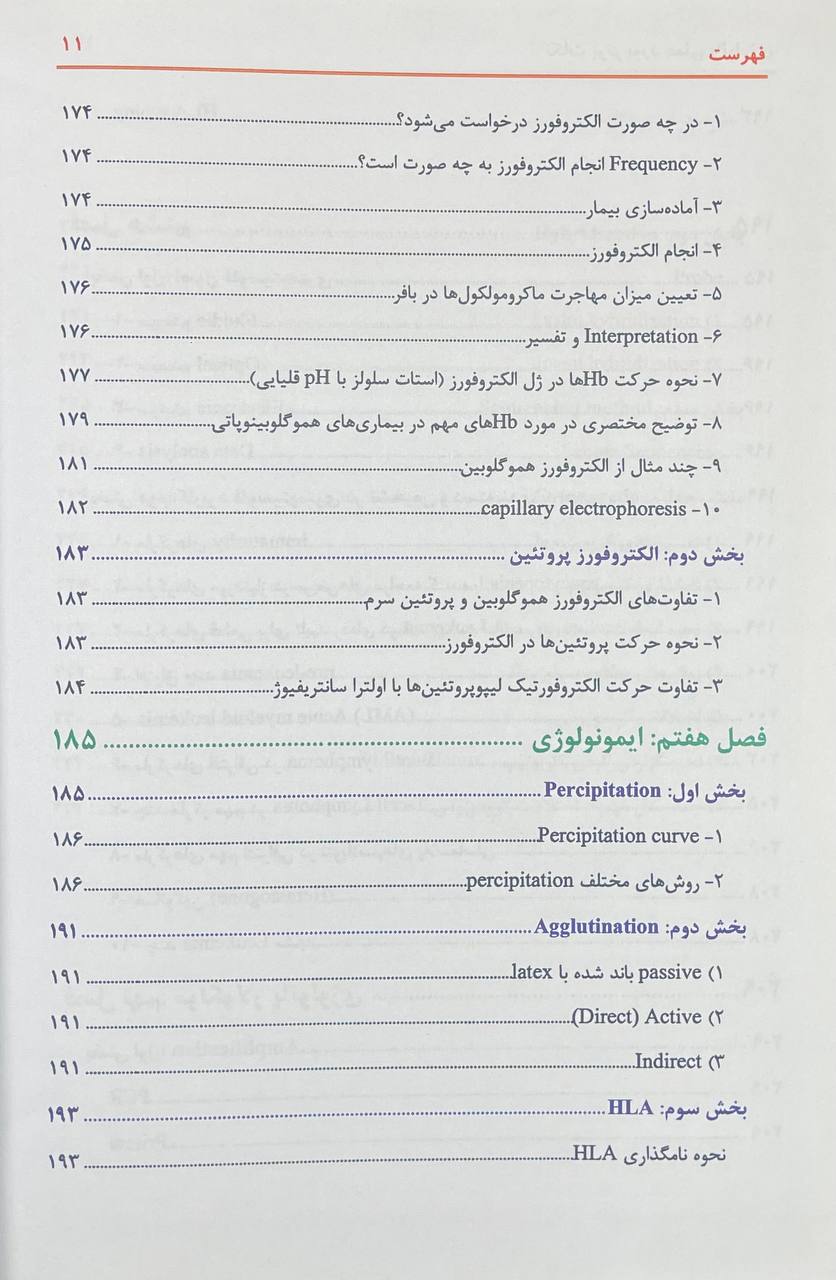 فهرست ۱۱
۱- در چه صورت الکتروفورز درخواست می‌شود؟ ۱۷۴
۲- Frequency انجام الکتروفورز به چه صورت است؟ ۱۷۴
۳- آماده‌سازی بیمار ۱۷۴
۴- انجام الکتروفورز ۱۷۵
۵- تعیین میزان مهاجرت ماکرومولکول‌ها در بافر ۱۷۶
۶- Interpretation و تفسیر ۱۷۶
۷- نحوه حرکت Hbها در ژل الکتروفورز (استات سلولز با pH قلیایی) ۱۷۷
۸- توضیح مختصری در مورد Hbهای مهم در بیماری‌های هموگلوبینوپاتی ۱۷۹
۹- چند مثال از الکتروفورز هموگلوبین ۱۸۱
۱۰- capillary electrophoresis ۱۸۲
بخش دوم: الکتروفورز پروتئین ۱۸۳
۱- تفاوت‌های الکتروفورز هموگلوبین و پروتئین سرم ۱۸۳
۲- نحوه حرکت پروتئین‌ها در الکتروفورز ۱۸۳
۳- تفاوت حرکت الکتروفورتیک لیپوپروتئین‌ها با اولترا سانتریفیوژ ۱۸۴
فصل هفتم: ایمونولوژی ۱۸۵
بخش اول: Percipitation ۱۸۵
۱- Percipitation curve ۱۸۶
۲- روش‌های مختلف percipitation ۱۸۶
بخش دوم: Agglutination ۱۹۱
۱) passive باند شده با latex ۱۹۱
۲) Active (Direct) ۱۹۱
۳) Indirect ۱۹۱
بخش سوم: HLA ۱۹۳
نحوه نامگذاری HLA ۱۹۳